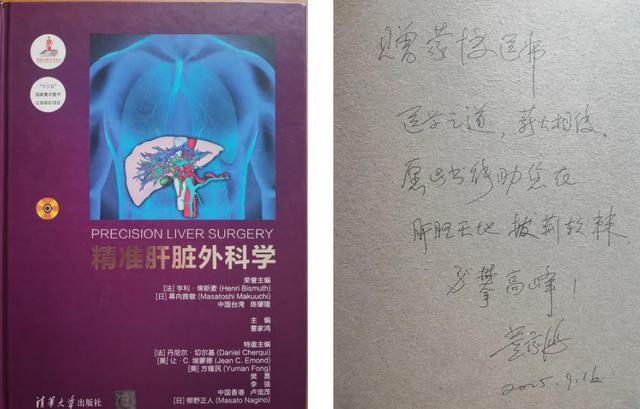 "十三五"
国家重点图书
出版规划项目
PRECISION LIVER SURGERY
精准肝脏外科学
荣誉主编
[法] 亨利·俾斯麦 (Henri Bismuth)
[日] 幕内雅敏 (Masatoshi Makuuchi)
中国台湾 陈肇隆
主 编
董家鸿
特邀主编
[法] 丹尼尔·切尔基 (Daniel Cherqui)
[美] 让·C. 埃蒙德 (Jean C. Emond)
[美] 方耀民 (Yuman Fong)
樊 嘉
李 强
中国香港 卢宠茂
[日] 梛野正人 (Masato Nagino)
清华大学出版社
赠 医师
医学之道，薪火相传，
愿此书能助您在
肝胆天地 披荆斩棘
勇攀高峰！
董家鸿
2025.9.16